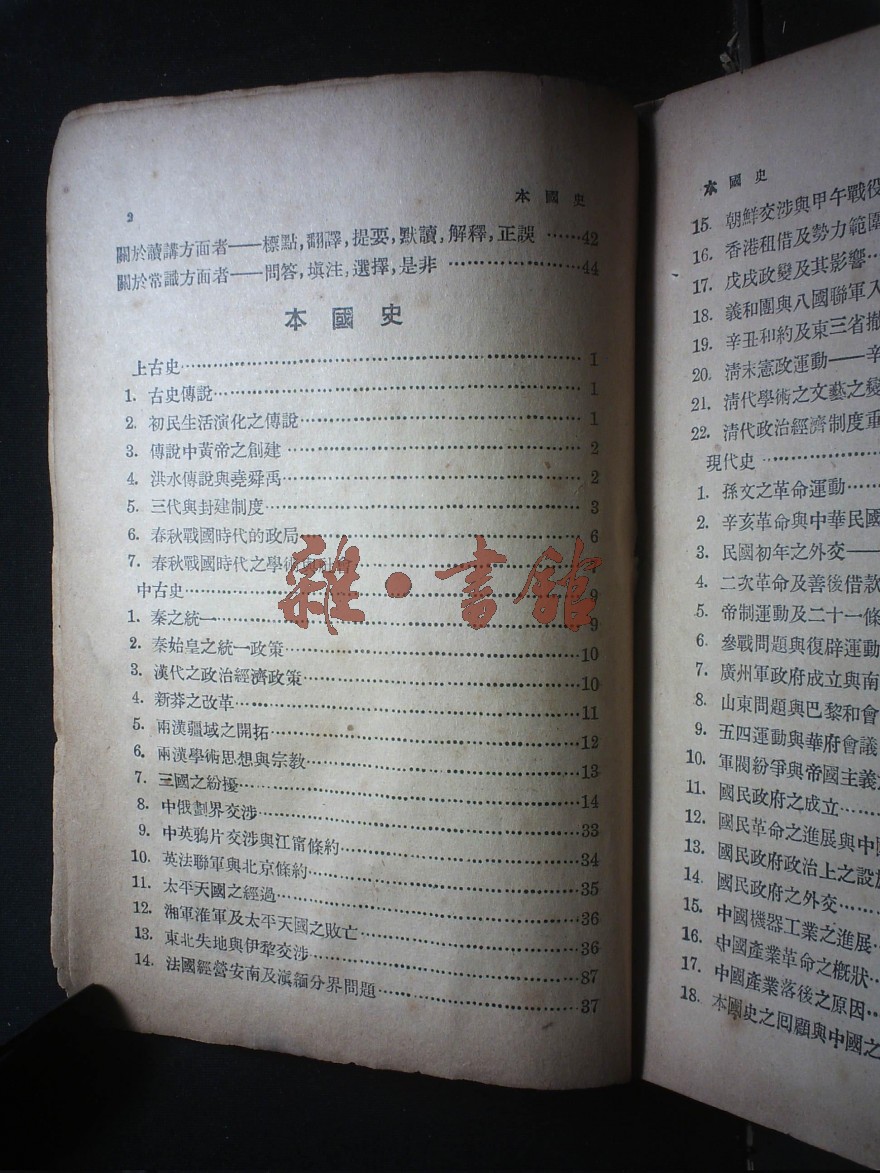 2
本國史
關於讀講方面者——標點,翻譯,提要,默讀,解釋,正誤 ……42
關於常識方面者——問答,填注,選擇,是非 ……………44
本國史
上古史……1
1. 古史傳說……1
2. 初民生活演化之傳說……1
3. 傳說中黃帝之創建……2
4. 洪水傳說與堯舜禹……2
5. 三代與封建制度……3
6. 春秋戰國時代的政局……6
7. 春秋戰國時代之學術
中古史……9
1. 秦之統一……9
2. 秦始皇之統一政策……10
3. 漢代之政治經濟政策……10
4. 新莽之改革……11
5. 兩漢疆域之開拓……12
6. 兩漢學術思想與宗教……13
7. 三國之紛擾……14
8. 中俄劃界交涉……33
9. 中英鴉片交涉與江甯條約……34
10. 英法聯軍與北京條約……35
11. 太平天國之經過……36
12. 湘軍淮軍及太平天國之敗亡……36
13. 東北失地與伊犂交涉……87
14. 法國經營安南及滇緬分界問題……37
雜·書館
本國史
15. 朝鮮交涉與甲午戰役
16. 香港租借及勢力範圍
17. 戊戌政變及其影響……
18. 義和團與八國聯軍入
19. 辛丑和約及東三省撤
20. 清末憲政運動——辛
21. 清代學術之文藝之變
22. 清代政治經濟制度重
現代史……
1. 孫文之革命運動……
2. 辛亥革命與中華民國
3. 民國初年之外交——
4. 二次革命及善後借款
5. 帝制運動及二十一條
6. 參戰問題與復辟運動
7. 廣州軍政府成立與南
8. 山東問題與巴黎和會
9. 五四運動與華府會議
10. 軍閥紛爭與帝國主義
11. 國民政府之成立……
12. 國民革命之進展與中國
13. 國民政府政治上之設施
14. 國民政府之外交……
15. 中國機器工業之進展
16. 中國產業革命之概狀
17. 中國產業落後之原因
18. 本國史之回顧與中國之